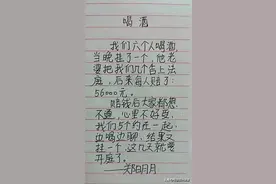 喝酒
我们六个人喝酒,
当晚挂了一个,他老
婆把我们几个告上法
庭,后来每人赔了:
56000元。
赔钱后大家都想
不通,心里不好受,
我们5个约在一起,
边喝边聊,结果又
挂一个,这几天就要
开庭了。